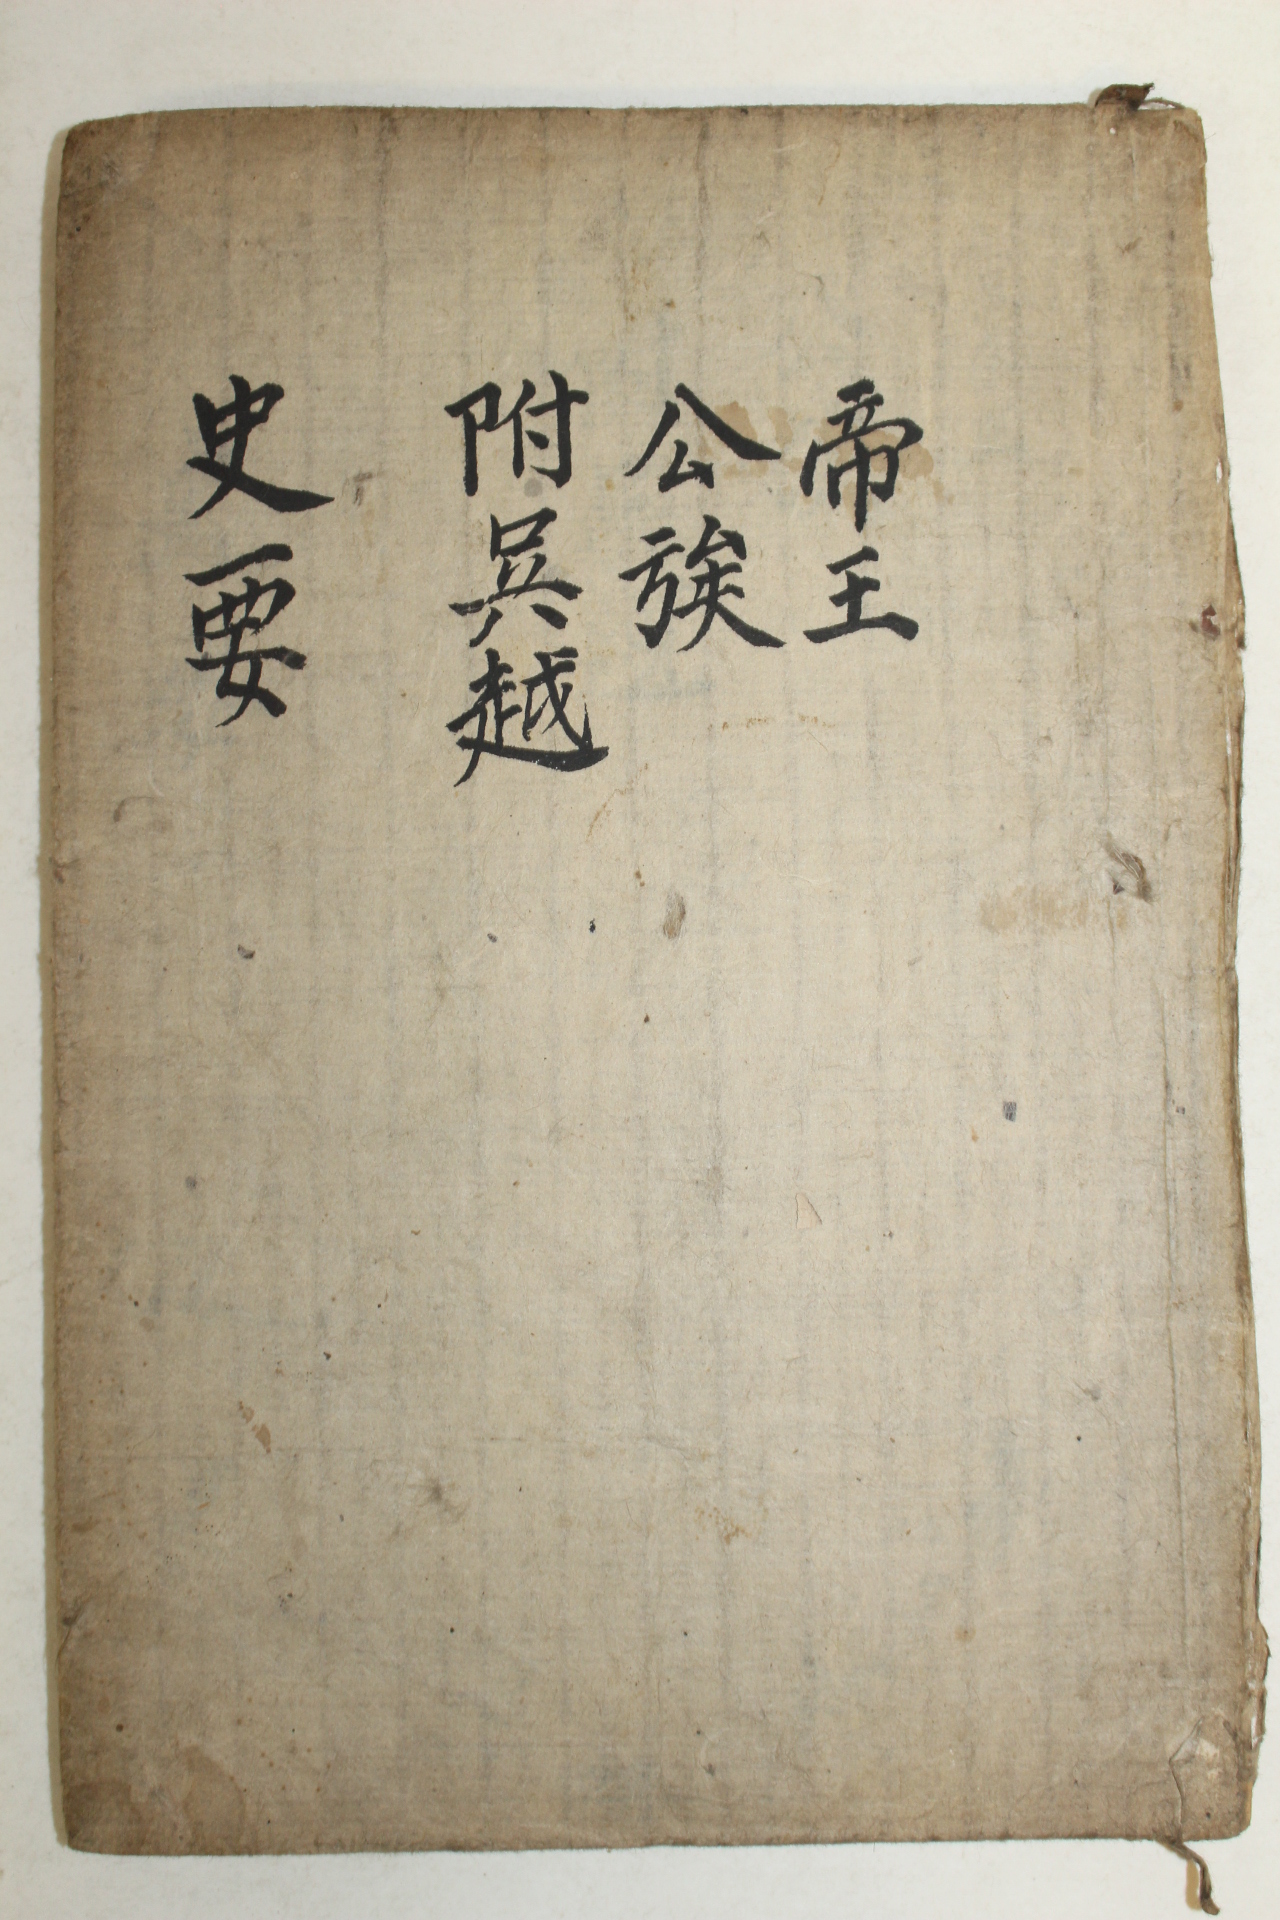 帝王
公族
附吳越
史要